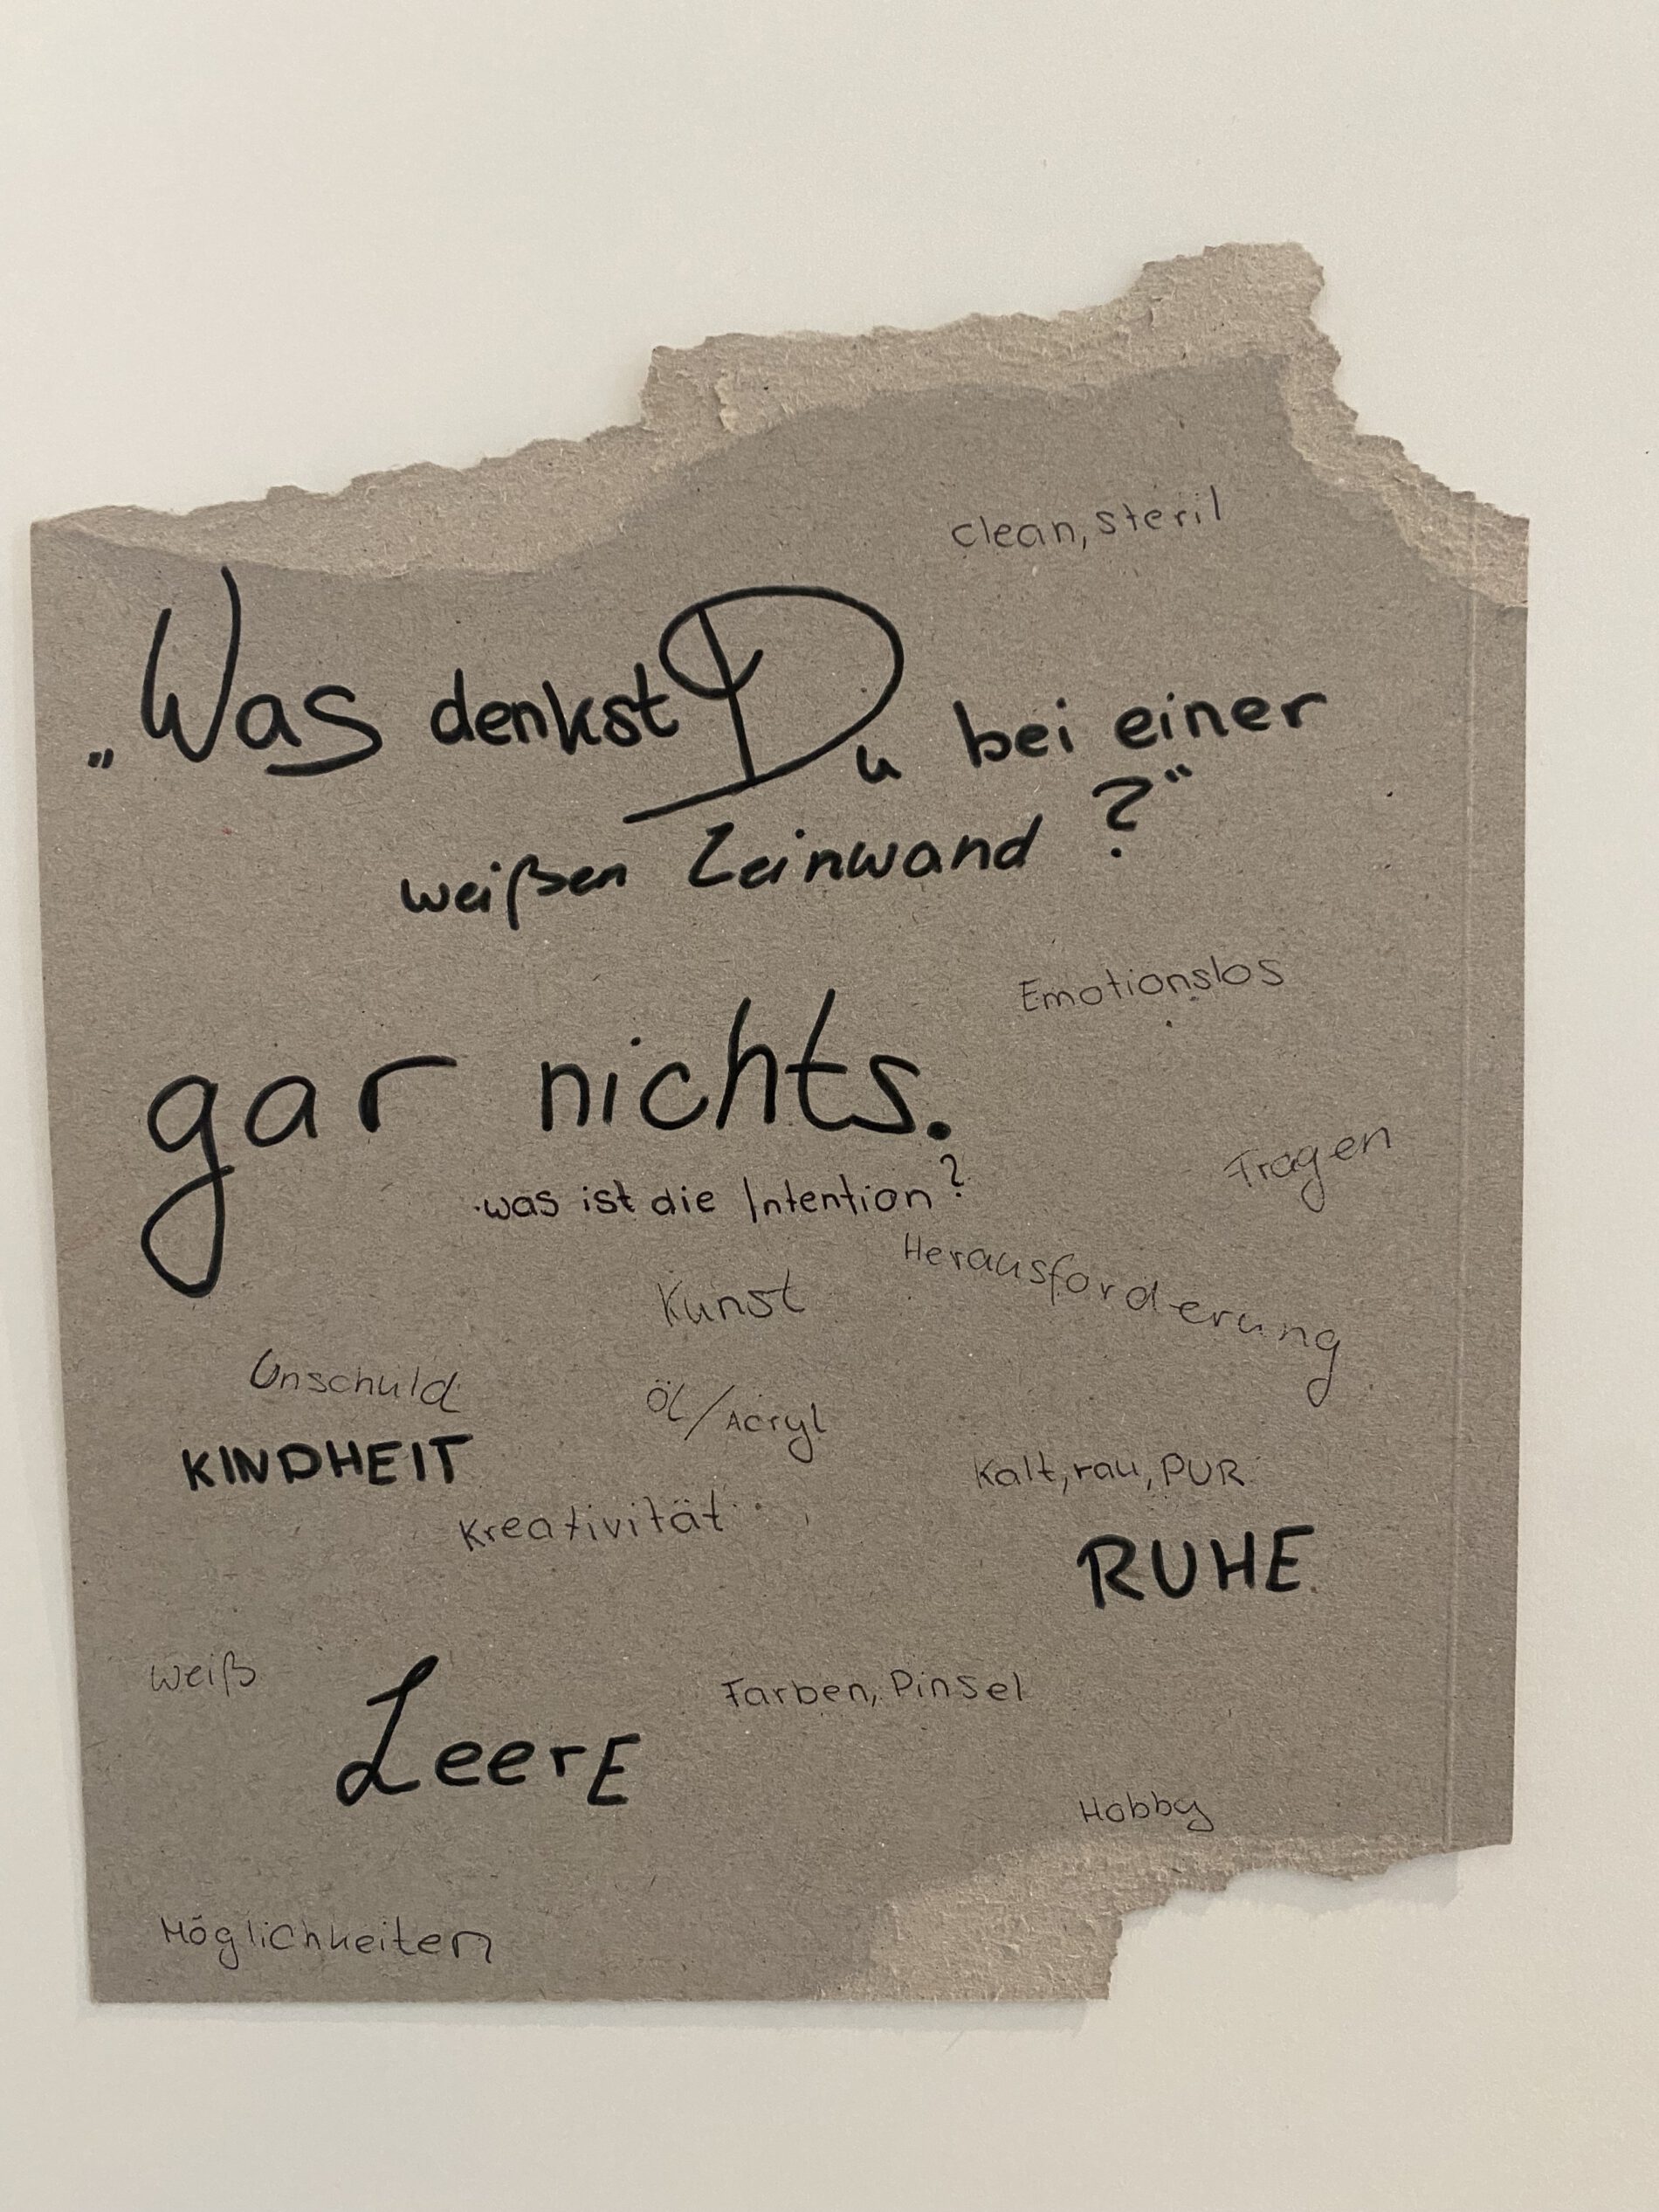 clean, steril
„Was denkst Du bei einer
weißen Leinwand?“
Emotionslos
gar nichts.
Fragen
was ist die Intention?
Herausforderung
Kunst
Unschuld
Öl/Acryl
KINDHEIT
Kalt, rau, PUR
Kreativität
RUHE
weiß
Farben, Pinsel
LeerE
Hobby
Möglichkeiten